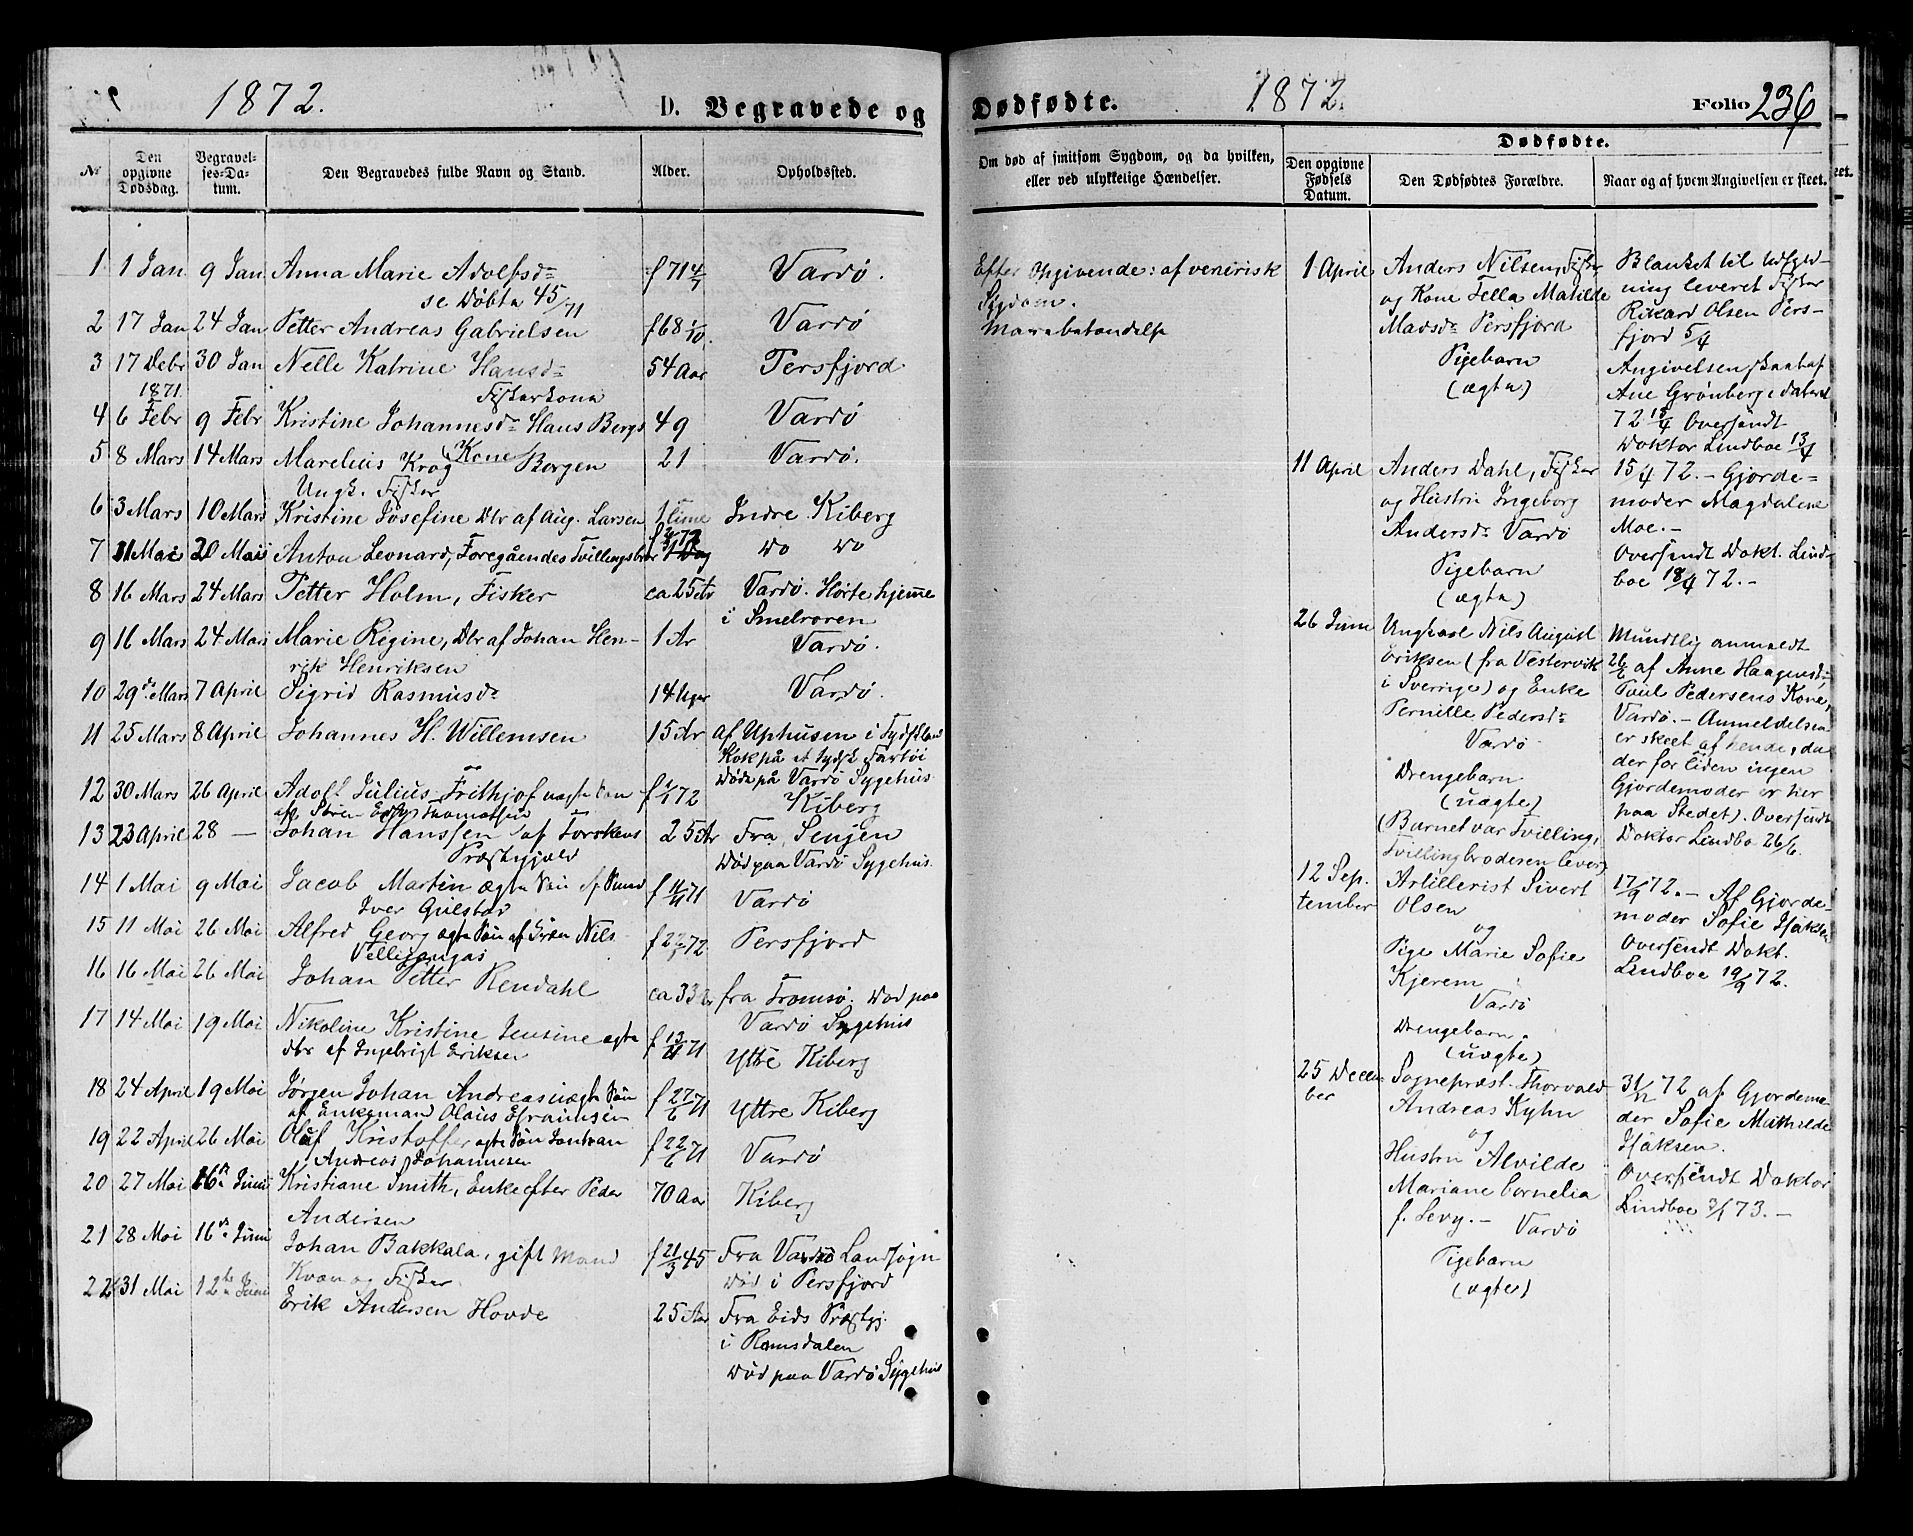 1872.
D. Begravede og
№
Den opgivne Dødsdag.
Begravelses-Datum.
Den Begravedes fulde Navn og Stand.
Alder.
Opholdssted.
1 1 Jan 9 Jan Anna Marie Adolfsd= f 71 4/7 Vardø.
se Døbte 45/71
2 17 Jan 24 Jan Petter Andreas Gabrielsen f 68 1/10. Vardø
3 17 Debr 30 Jan Nelle Katrine Hansd= 54 Aar Persfjord
1871 Fiskerkona
4 6 Febr 9 Febr Kristine Johannesd= Hans Bergs 49 Vardø
Kone
5 8 Mars 14 Mars Marelius Krog Borgen 21 Vardø.
Ungk. Fisker
6 3 Mars 10 Mars Kristine Josefine Dtr af Aug. Larsen 1 time Indre Kiberg
7 11 Mai 20 Mai Anton Leonard, Foregåendes Tvillingsbror Do Do
8 16 Mars 24 Mars Petter Holm, Fisker ca 25 Ar Vardø. Hørte hjemme
i Smelroren
9 16 Mars 24 Mars Marie Regine, Dtr af Johan Hen- 1 Ar Vardø.
rik Henriksen
10 29de Mars 7 April Sigrid Rasmusd= 14 Uger Vardø.
11 25 Mars 8 April Johannes H. Willemsen 15 Ar af Uphusen i Tydskland
Kok på et tydsk Fartøi
Døde på Vardø Sygehus.
12 30 Mars 26 April Adolf Julius Frithjof uægte Søn f 1/1 72 Kiberg
af Søren Thomassen
13 23 April 28 — Johan Hanssen af Torskens 25 Ar Fra Senjen
Præstegjæld Død paa Vardø Sygehus.
14 1 Mai 9 Mai Jacob Martin ægte Søn af f 11/11 71 Vardø
Iver Gulstav
15 11 Mai 26 Mai Alfred Georg ægte Søn af Nils f 22/1 72. Persfjord
16 16 Mai 26 Mai Johan Petter Rendahl ca 33 Ar fra Tromsø. Død paa
Vardø Sygehus
17 14 Mai 19 Mai Nikoline Kristine Jensine ægte f 13/11 71 Ytre Kiberg
dtr af Ingebrigt Eriksen
18 24 April 19 Mai Jørgen Johan Andreas uægte Søn f 27/6 71 Yttre Kiberg
af Enkemand Olaus Efraimsen
19 22 April 26 Mai Oluf Kristoffer ægte Søn f 22/6 71 Vardø
Andreas Johannesen
20 27 Mai 16de Juni Kristiane Smith, Enke efter Peder 70 Aar Kiberg
Andersen
21 28 Mai 16de Juni Johan Bakkala, gift Mand f 21/3 45 Fra Vardø Landsogn
Kvæn og Fisker. Død i Persfjord
22 31 Mai 12te Juni Erik Andersen Hovde 25 Aar Fra Eids Præstgj.
i Romsdalen
Død paa Vardø Sygehus
Dødfødte.
1872.
Folio 236
Om død af smitsom Sygdom, og da hvilken, eller ved ulykkelige Hændelser.
Dødfødte.
Den opgivne Fødsels Datum.
Den Dødfødtes Forældre.
Naar og af hvem Angivelsen er skeet.
Efter Opgivende: af venerisk
Sygdom.
1 April
Anders Nilsen, Fisker
og Kone Fella Matilde
Madsd= Persfjord
Pigebarn
(ægte)
Blanket til Udfyld-
ning leveret Fisker
Rikard Olsen Pers-
fjord 5/4
Angivelsen skeet af
Ane Grønberg dateret
72 12/4 Oversendt
Doktor Lindboe 13/4
11 April
Anders Dahl, Fisker
og Hustru Ingeborg
Andersd= Vardø
Pigebarn
(ægte)
15/4 72. – Gjorde=
moder Magdalene
Moe. –
Oversendt Dokt. Lind-
boe 18/4 72. –
26 Juni
Ungkarl Nils August
Eriksen (fra Vestervik
i Sverige) og Enke
Pernille Pedersd=
Vardø
Drengebarn
(uægte)
(Barnet var Tvilling,
Tvillingbroderen lever)
Mundtlig anmeldt
26/6 af Anne Haagensd=,
Poul Pedersens Kone,
Vardø. – Anmeldelsen
er skeet af hende, da
der for tiden ingen
Gjordemoder er her
paa Stedet). Oversendt
Doktor Lindbo 26/6.
12 Sep-
tember
Artillerist Sivert
Olsen
og
Pige Marie Sofie
Kjerem
Vardø
Drengebarn.
(uægte)
17/9 72. – Af Gjorde=
moder Sofie Isaksen
Oversendt Dokt.
Lindboe 19/9 72.
25 Decem-
ber
Sognepræst Thorvald
Andreas Kyhn
og
Hustru Alvilde
Mariane Cornelia
f. Levy. – Vardø
Pigebarn
(ægte)
31/12 72 af Gjordemo-
der Sofie Mathilde
Isaksen.
Oversendt Doktor
Lindboe 3/1 73. –